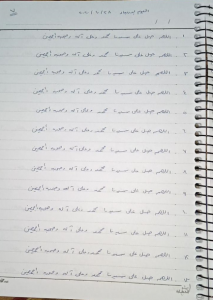 ١. اللهم صل على سيدنا محمد وعلى آله وصحبه أجمعين
٢. اللهم صل على سيدنا محمد وعلى آله وصحبه أجمعين
٣. اللهم صل على سيدنا محمد وعلى آله وصحبه أجمعين
٤. اللهم صل على سيدنا محمد وعلى آله وصحبه أجمعين
٥. اللهم صل على سيدنا محمد وعلى آله وصحبه أجمعين
٦. اللهم صل على سيدنا محمد وعلى آله وصحبه أجمعين
٧. اللهم صل على سيدنا محمد وعلى آله وصحبه أجمعين
٨. اللهم صل على سيدنا محمد وعلى آله وصحبه أجمعين
٩. اللهم صل على سيدنا محمد وعلى آله وصحبه أجمعين
١٠. اللهم صل على سيدنا محمد وعلى آله وصحبه أجمعين
١١. اللهم صل على سيدنا محمد وعلى آله وصحبه أجمعين
١٢. اللهم صل على سيدنا محمد وعلى آله وصحبه أجمعين
١٣. اللهم صل على سيدنا محمد وعلى آله وصحبه أجمعين